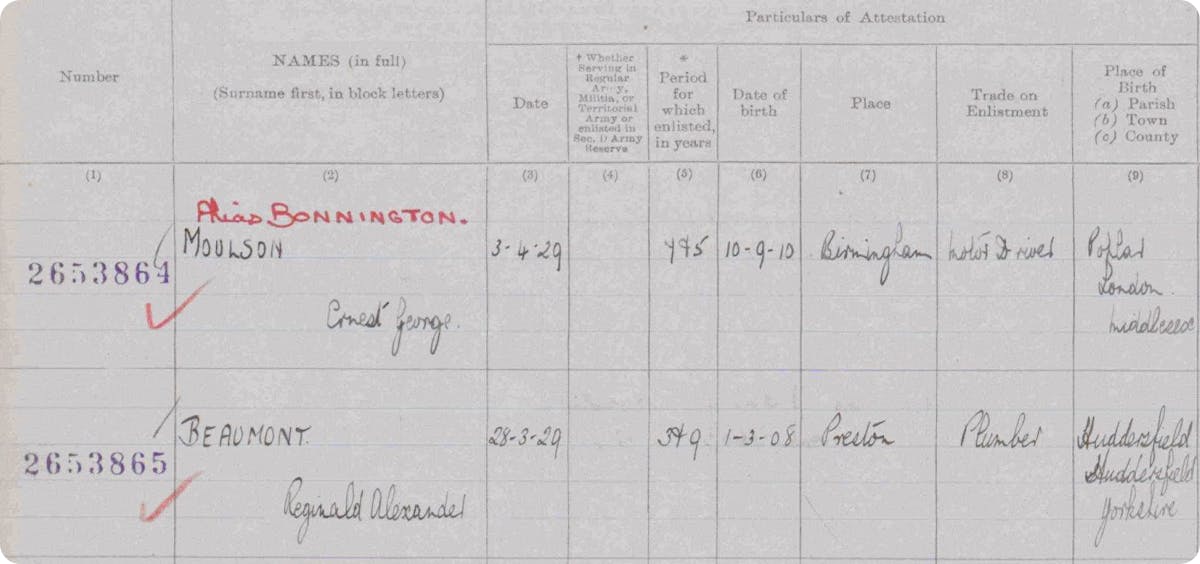 Particulars of Attestation
Number
NAMES (in full)
(Surname first, in block letters)
Date
† Whether
Serving in
Regular
Army,
Militia, or
Territorial
Army or
enlisted in
Sec. D Army
Reserve
*
Period
for
which
enlisted,
in years
Date of
birth
Place
Trade on
Enlistment
Place of
Birth
(a) Parish
(b) Town
(c) County
(1) (2) (3) (4) (5) (6) (7) (8) (9)
Alias BONNINGTON.
2653864 MOULSON 3-4-29 7&5 10-9-10 Birmingham Motor Driver Poplar
London.
Ernest George. Middlesex
2653865 BEAUMONT. 28-3-29 3&9 1-3-08 Preston Plumber Huddersfield
Huddersfield
Reginald Alexander Yorkshire